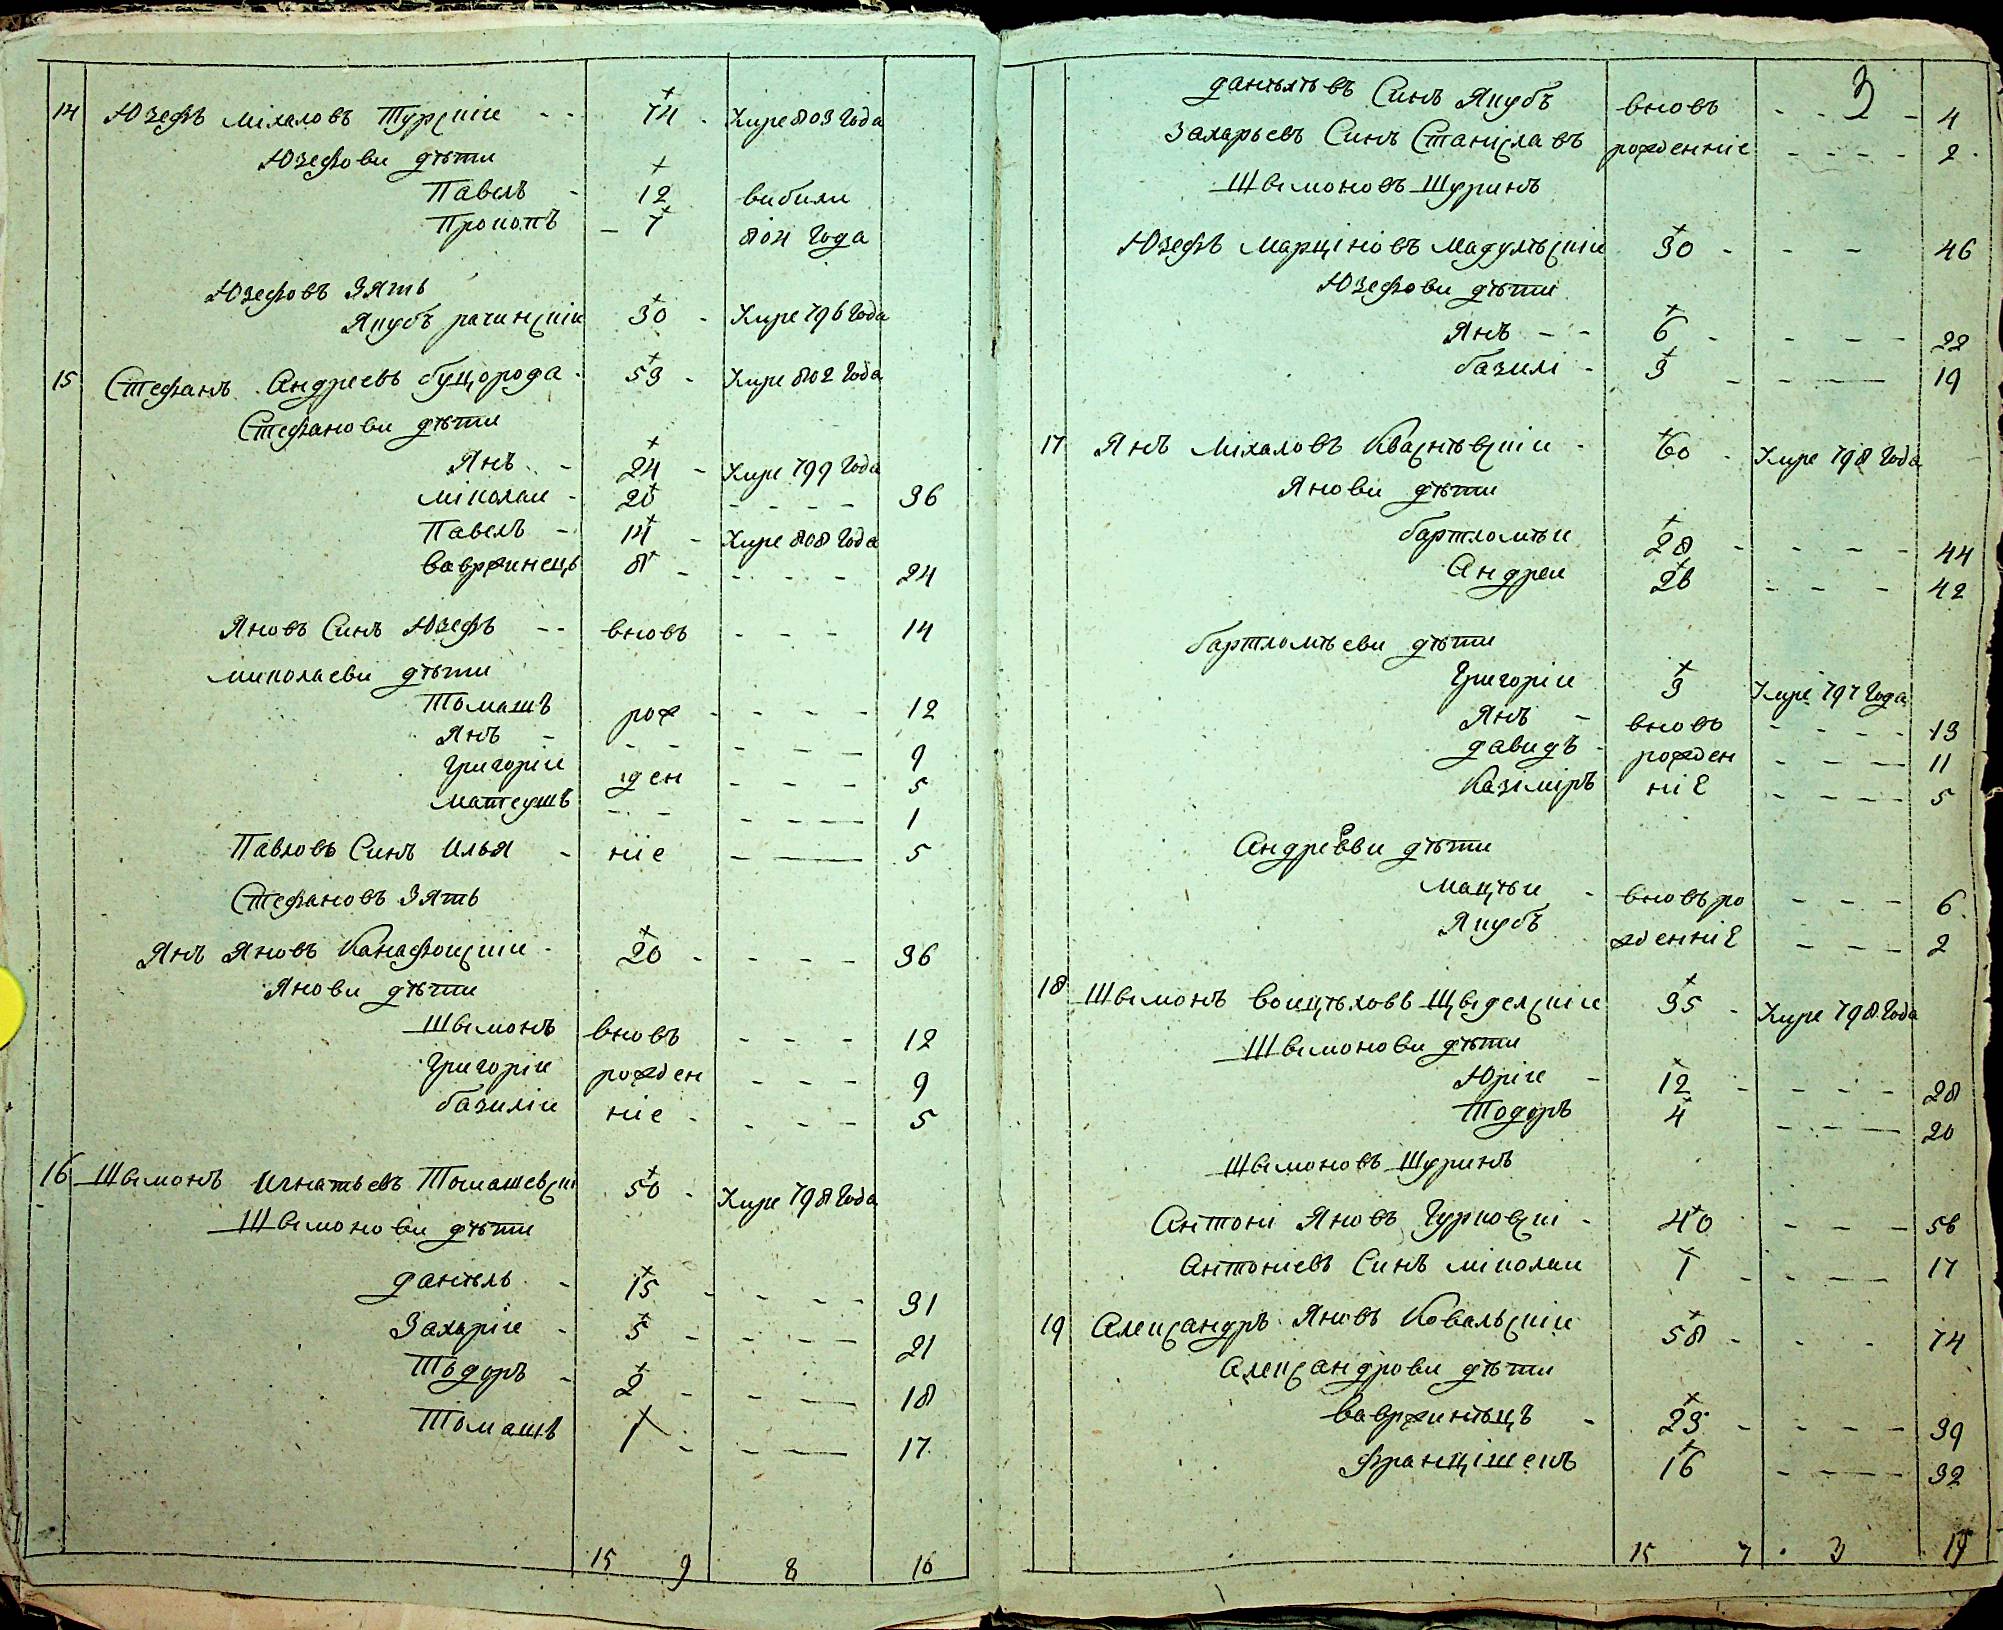 14 Юзефъ Міхаловъ Турскіи - - 74 - Умре 803 Года
Юзефови дѣти
Павелъ - 12 вибили
Прокопъ - 7 804 Года
Юзефовъ Зять
Якубъ рачинскіи 30 - Умре 796 Года
15 Стефанъ Андреевъ буцорода - 53 - Умре 802 Года
Стефанови дѣти
Янъ - 24 - Умре 799 Года
Міколаи - 20 - - - - 36
Павелъ - 14 - Умре 808 Года
Вавржинецъ 8 - - - - 24
Яновъ Синъ Юзефъ - - вновь - - - 14
Миколаеви дѣти
Томашъ рож - - - - 12
Янъ - - - - - - 9
Григоріи ден - - - 5
Матеушъ - - - - - 1
Павловъ Синъ Илья - ніе - - 5
Стефановъ Зять
Янъ Яновъ Канафоискіи - 20 - - - - 36
Янови дѣти
Швімонъ вновь - - - 12
Григоріи рожден - - - 9
базиліи ніе - - - - 5
16 Швімонъ Игнатьевъ Томашевскі 50 - Умре 798 Года
Швімонови дѣти
Данѣль - 15 - - - - 31
Захаріи - 5 - - - - 21
Тодоръ - 2 - - - 18
Томашъ 1 - - - 17
15 9 8 16
3
Данѣлѣвъ Синъ Якубъ вновь - - - 4
Захарьевъ Синъ Станіславъ рожденніе - - - - 2
Швімоновъ Шуринъ
Юзефъ Марціновъ Мадулѣскіи 30 - - - 46
Юзефови дѣти
Янъ - - 6 - - - - 22
базилі - 3 - - - 19
17 Янъ Міхаловъ Кваснѣвскіи - 60 - Умре 798 Года
Янови дѣти
бартломѣи 28 - - - - 44
Андреи 26 - - - 42
бартломѣеви дѣти
Григоріи 3 Умре 797 Года
Янъ - вновь - - - - 13
Давидъ - рожден - - - 11
Казіміръ ніе - - - - 5
Андрееви дѣти
Мацѣи - вновь ро - - - 6
Якубъ жденніе - - - 2
18 Швімонъ Воицѣховъ Щвіделскіи 35 - Умре 798 Года
Швімонови дѣти
Юріи - 12 - - - - 28
Тодоръ 4 - - - - 20
Швімоновъ Шуринъ
Антоні Яновъ Гурковскі - 40 - - - 56
Антоніевъ Синъ Міколаи 1 - - - - 17
19 Александръ Яновъ Ковальскіи 58 - - - 74
Александрови дѣти
Вавржинѣцъ - 23 - - - - 39
Францішекъ 16 - - - - 32
15 7 3 19